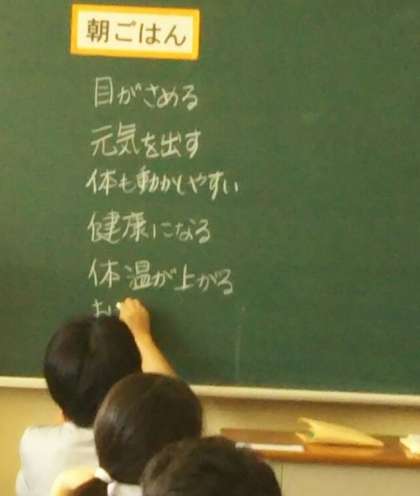 朝ごはん
目がさめる
元気を出す
体も動かしやすい
健康になる
体温が上がる